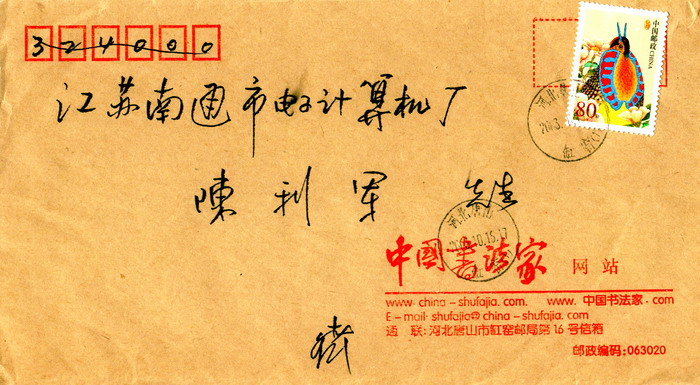 324000
江苏南通市电子计算机厂
陳利军 先生
中国邮政
CHINA
80分
河北唐山
河北唐山
中國書法家 网站
www·china-shufajia.com. www.中国书法家.com
E-mail·shufajia@china-shufajia.com
通 联:河北唐山市缸窑邮局第16号信箱
邮政编码:063020